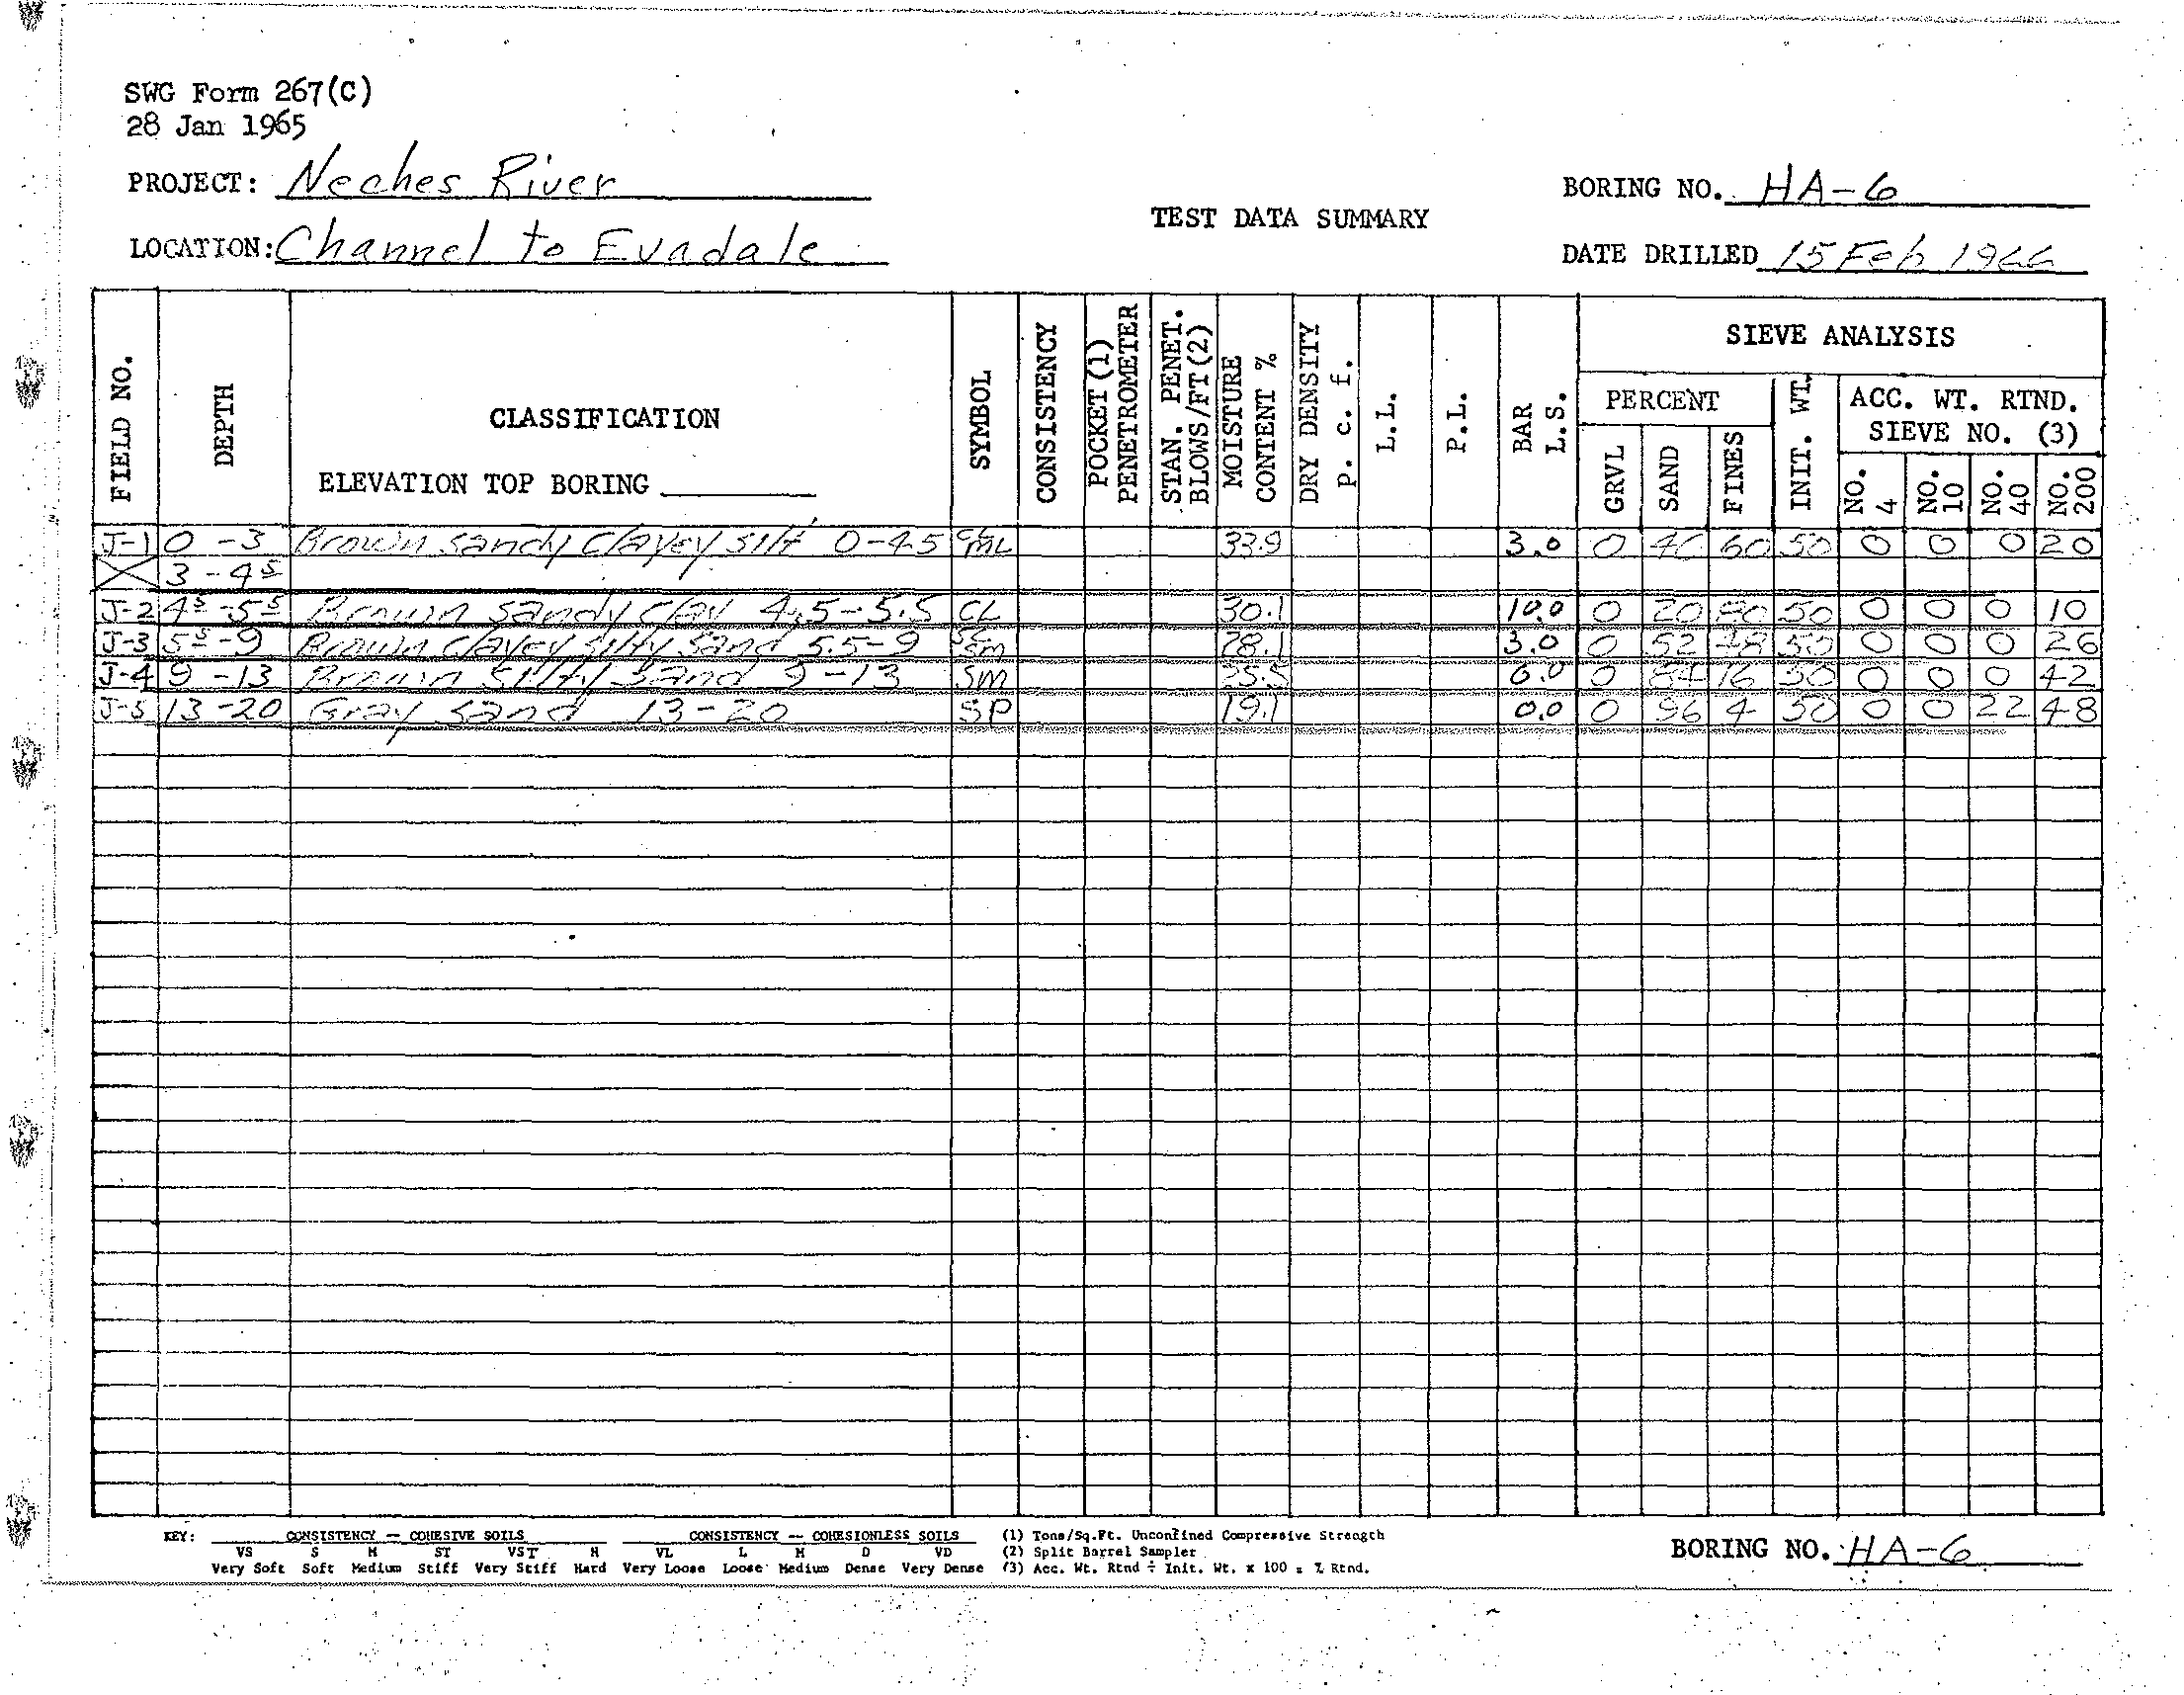 SWG Form 267(C)
28 Jan 1965
PROJECT: Neches River
BORING NO. HA-6
TEST DATA SUMMARY
LOCATION: Channel to Evadale
DATE DRILLED 15 Feb 1966
FIELD NO.
DEPTH
CLASSIFICATION
ELEVATION TOP BORING
SYMBOL
CONSISTENCY
POCKET (1) PENETROMETER
STAN. PENET. BLOWS/FT (2)
MOISTURE CONTENT %
DRY DENSITY P. c. f.
L.L.
P.L.
BAR L.S.
SIEVE ANALYSIS
PERCENT
GRVL
SAND
FINES
INIT. WT.
ACC. WT. RTND.
SIEVE NO. (3)
NO. 4
NO. 10
NO. 40
NO. 200
J-1 0 -3 Brown sandy clayey silt 0-4.5 CL ML 33.9 3.0 0 40 60 50 0 0 0 20
3 - 4⁵
J-2 4⁵ -5⁵ Brown sandy clay 4.5-5.5 CL 30.1 10.0 0 20 80 50 0 0 0 10
J-3 5⁵ -9 Brown clayey silty sand 5.5-9 SC SM 28.1 3.0 0 52 48 50 0 0 0 26
J-4 9 -13 Brown silty sand 9-13 SM 25.5 6.0 0 84 16 50 0 0 0 42
J-5 13-20 Gray sand 13-20 SP 19.1 0.0 0 96 4 50 0 0 22 48
KEY: CONSISTENCY - COHESIVE SOILS CONSISTENCY -- COHESIONLESS SOILS (1) Tons/Sq.Ft. Unconfined Compressive Strength
VS S M ST VST H VL L M D VD (2) Split Barrel Sampler
Very Soft Soft Medium Stiff Very Stiff Hard Very Loose Loose Medium Dense Very Dense (3) Acc. Wt. Rtnd ÷ Init. Wt. x 100 = % Rtnd.
BORING NO. HA-6